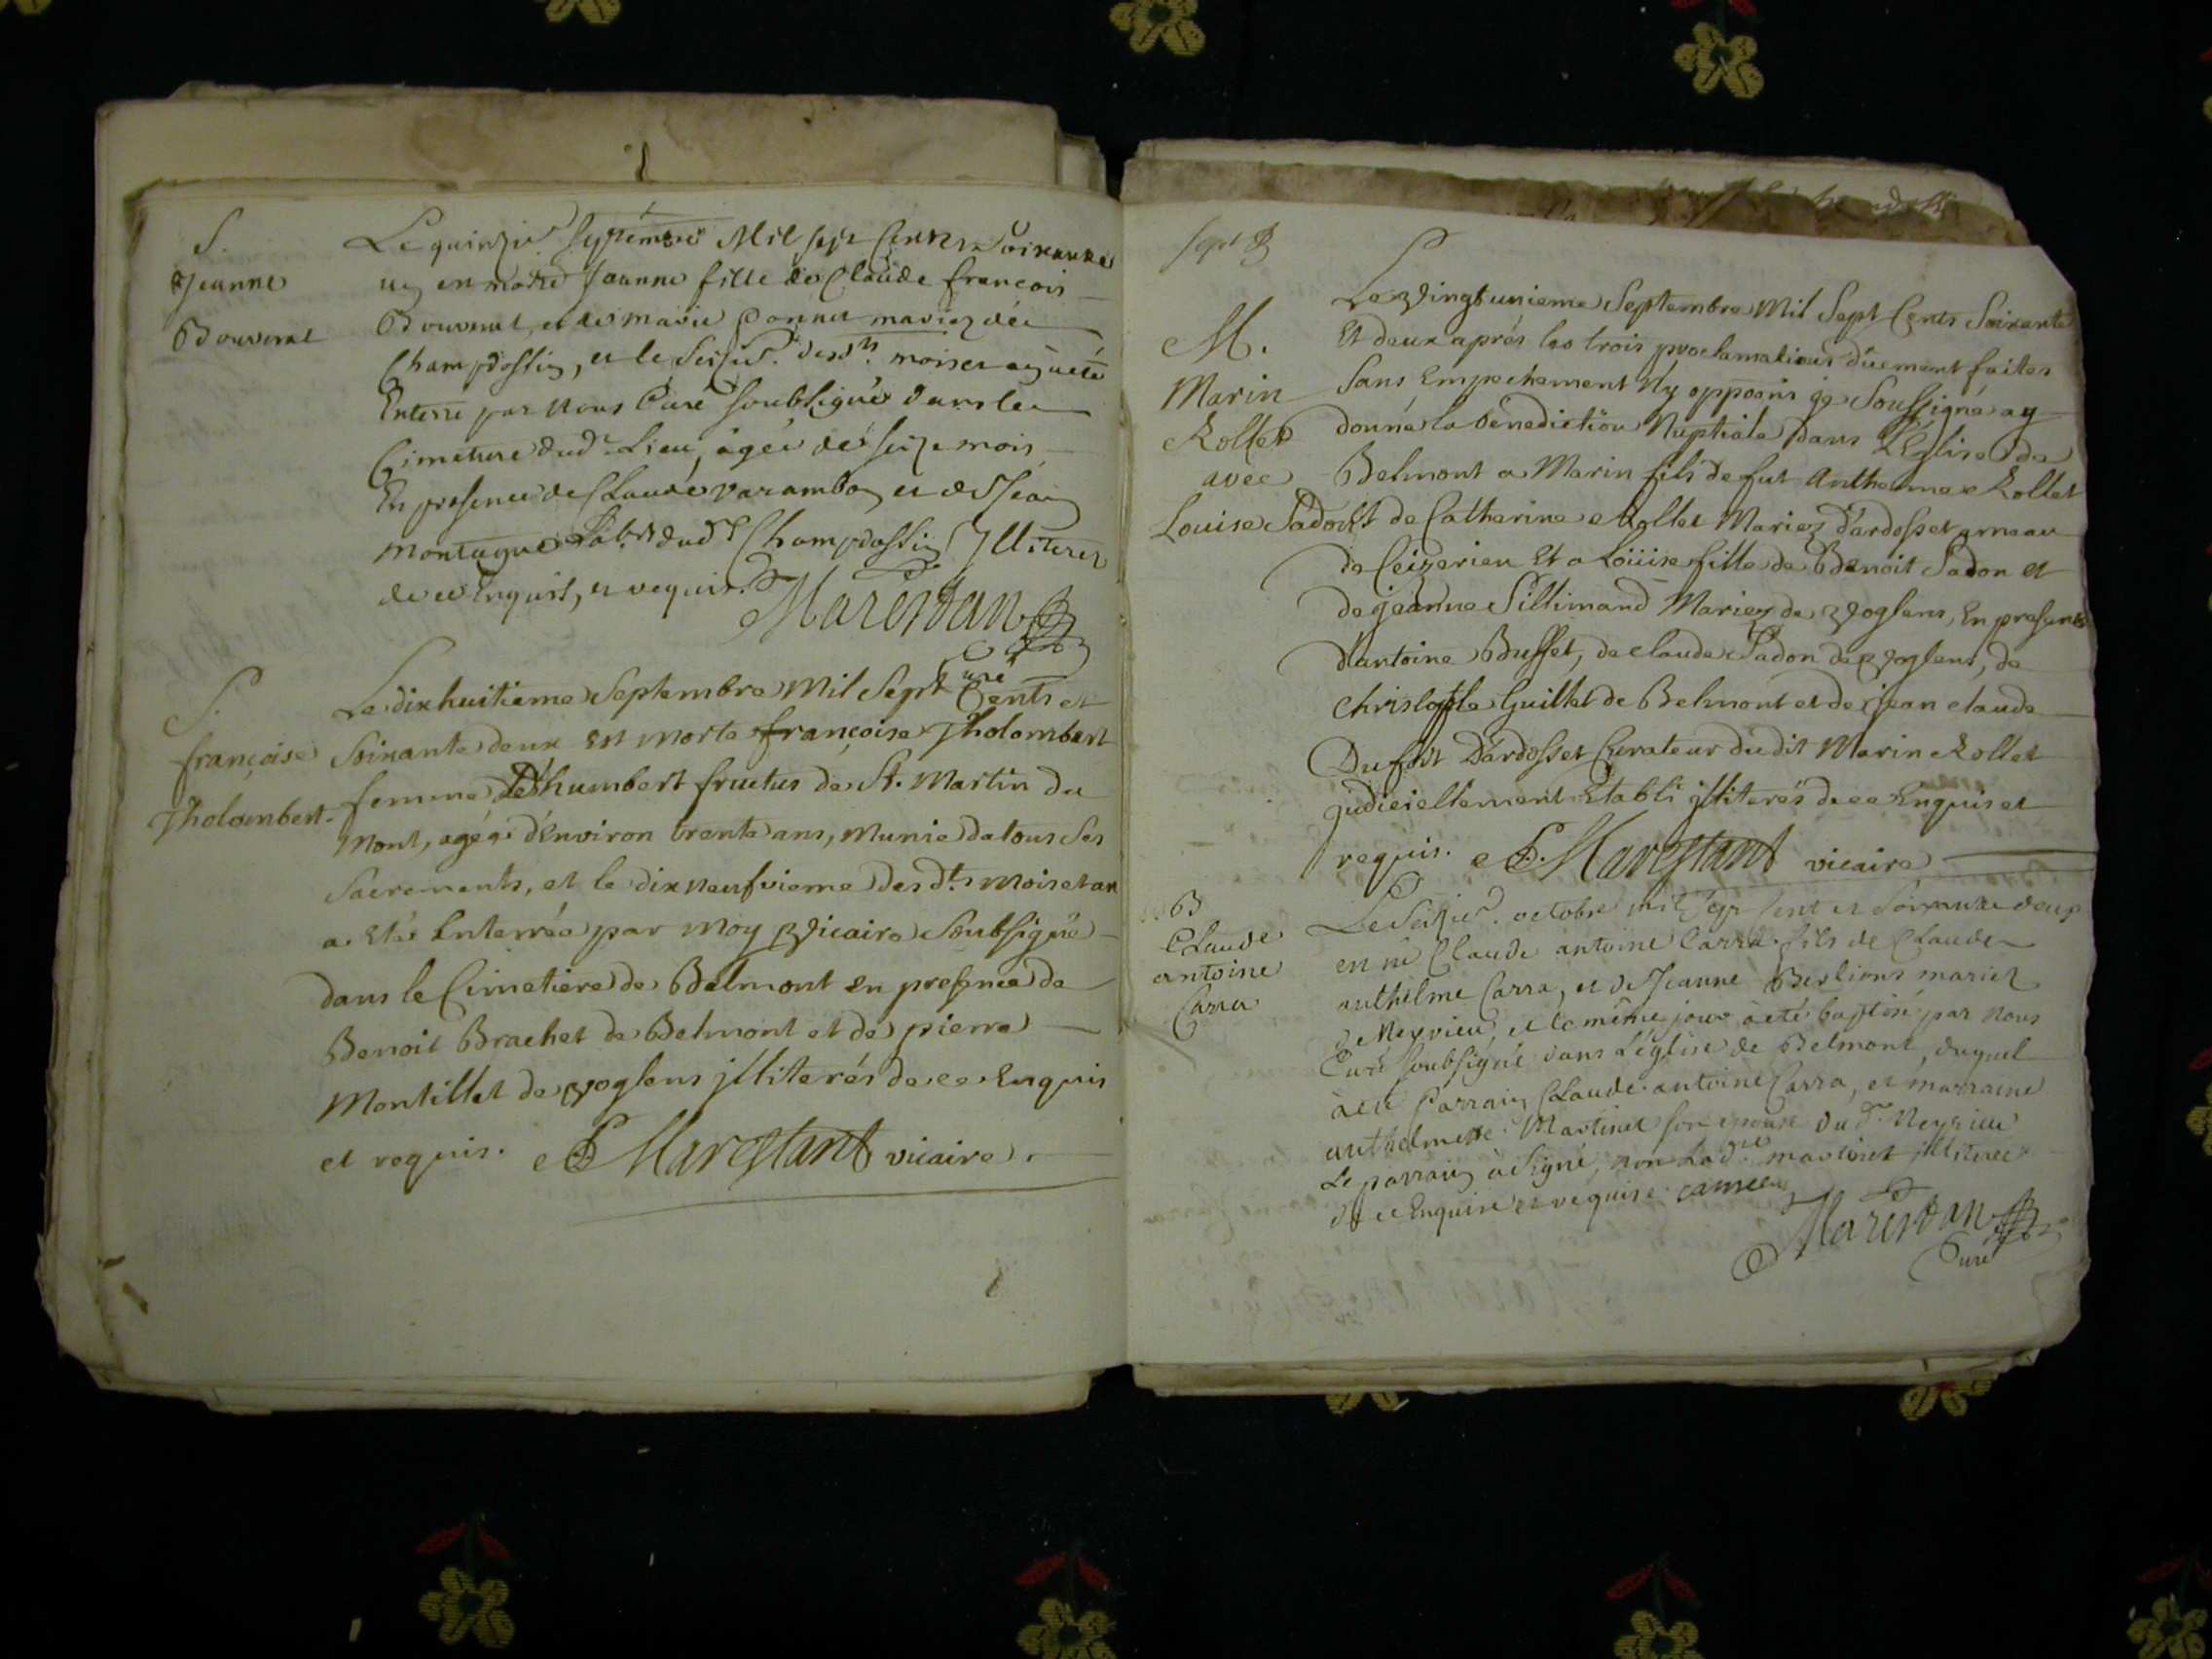 S.
Jeanne
Bouvrat
Le quinzie. Septembre Mil sept Cents Soixante
est morte Jeanne fille de Claude françois
Bouvrat, et de marie Bonnet mariez de
Champdossin, et le Seizie. desdts. mois et an à été
Enterré par Nous Curé soubsigné dans le
Cimetiere dud. Lieu, âgée de seize mois
En presence de Claude varambon et de Jean
Montagne Labrs. dudt. Champdossin Illiterez
de ce Enquis, et requis. Marestan
Curé
S.
françoise
Tholombert.
Le dixhuitieme Septembre Mil Sept Cents et
Soixante deux est morte françoise Tholombert
femme de humbert fructus de St. Martin du
Mont, agée d'Environ trente ans, munie de tous Ses
Sacrements, et le dix neufvieme des dts. mois et an
a. Eté Enterrée par moy Vicaire Soubsigné
dans le Cimetiere de Belmont en presence de
Benoit Brachet de Belmont et de pierre
Montillet de voglens jlliterés de ce Enquis
et requis. Marestant vicaire.
Sept
M.
Marin
Rollet
avec
Louise Sadon
Le Vingt unieme Septembre Mil Sept Cents Soixante
Et deux aprés les trois proclamations düement faites
Sans Empechement Ny opposins je Soussigné ay
donné la benediction Nuptiale dans L'Eglise de
Belmont a Marin fils de fut Anthelme Rollet
et de Catherine Rollet Mariez d'ardosset ameau
de Ceizerieu Et a Loüise fille de Benoit Sadon et
de jeanne Sillimand Mariez de Voglens, En presence
d'antoine Busset, de claude Sadon de Voglens, de
Christophle Guillet de Belmont et de jean claude
Dufort D'ardosset Curateur dudit Marin Rollet
judiciellement Etabli jlliterés de ce Enquis et
requis. Marestant vicaire
B
Claude
antoine
Carra
Le Seizie. octobre mil sept cent et Soixante deux
est né Claude antoine Carra fils de Claude
anthelme Carra, et de Jeanne Berlions mariez
de Meyrieu, et le même jour à été baptisé par Nous
Curé soubsigné dans L'église de Belmont, duquel
à été Parrain Claude antoine Carra, et marraine
anthelmette Martinet son epouse du d. Meyrieu
Le parrain à Signé, non Lade. martinet jlliterée
de ce Enquise et requise. carra
Marestan
Curé